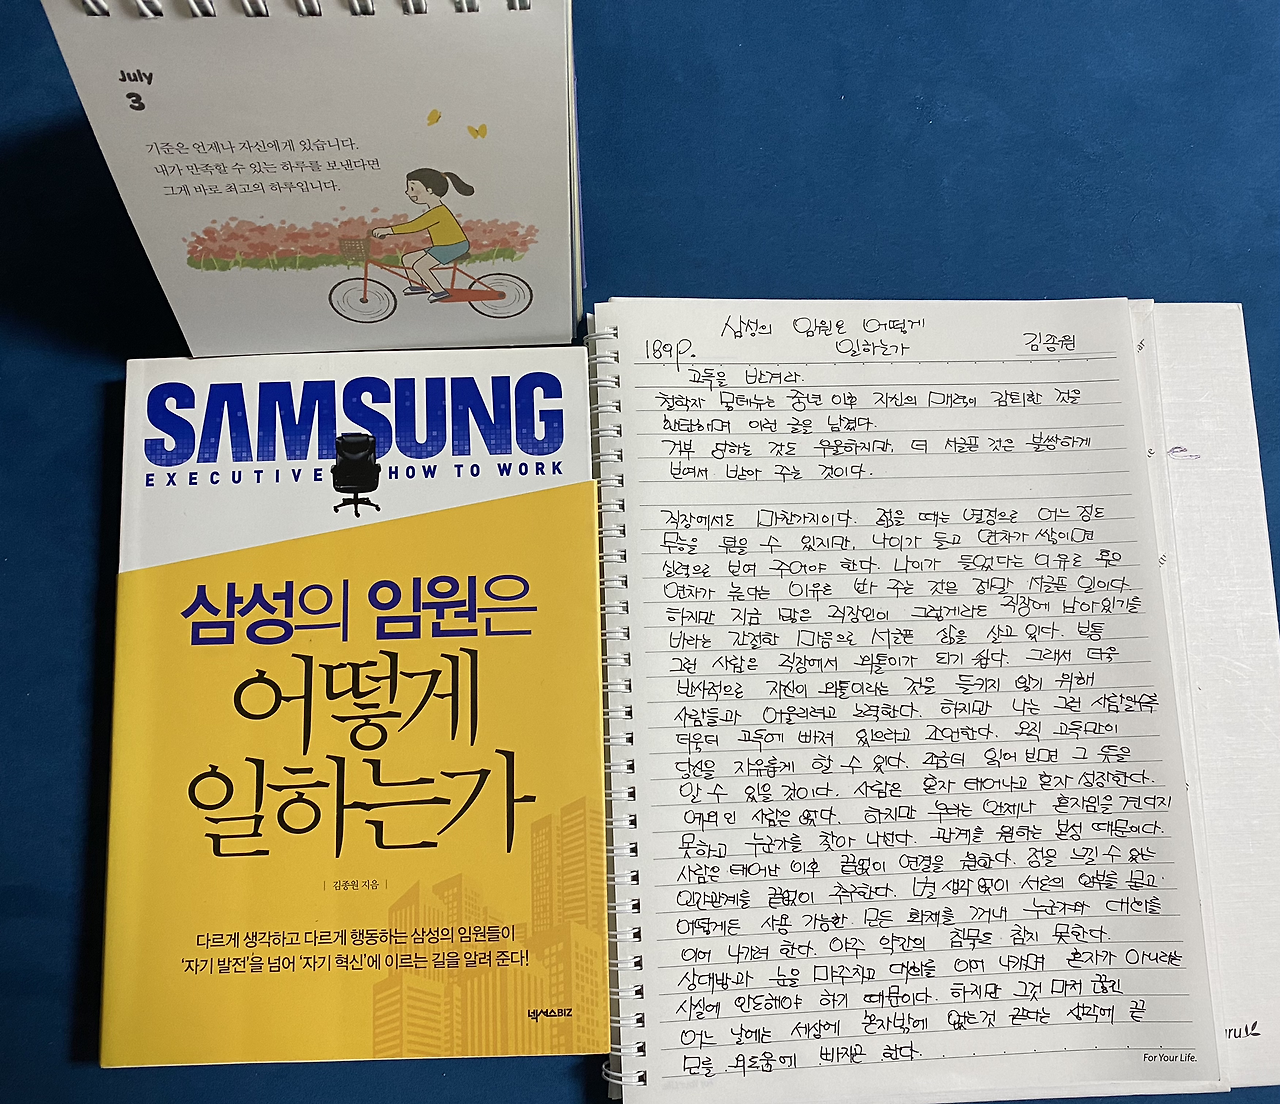 July
3
기준은 언제나 자신에게 있습니다.
내가 만족할 수 있는 하루를 보낸다면
그게 바로 최고의 하루입니다.
SAMSUNG
EXECUTIVE HOW TO WORK
삼성의 임원은
어떻게
일하는가
| 김종원 지음 |
다르게 생각하고 다르게 행동하는 삼성의 임원들이
‘자기 발전’을 넘어 ‘자기 혁신’에 이르는 길을 알려 준다!
넥서스BIZ
삼성의 임원은 어떻게
189p. 일하는가 김종원
고독을 반겨라.
철학자 몽테뉴는 중년 이후 자신의 매력이 감퇴한 것을
한탄하며 이런 글을 남겼다.
거부 당하는 것도 우울하지만, 더 서글픈 것은 불쌍하게
보여서 받아 주는 것이다.
직장에서도 마찬가지이다. 젊을 때는 열정으로 어느 정도
무능을 덮을 수 있지만, 나이가 들고 연차가 쌓이면
실력으로 보여 주어야 한다. 나이가 들었다는 이유로 혹은
연차가 높다는 이유로 봐 주는 것은 정말 서글픈 일이다.
하지만 지금 많은 직장인이 그렇게라도 직장에 남아있기를
바라는 간절한 마음으로 서글픈 삶을 살고 있다. 보통
그런 사람은 직장에서 외톨이가 되기 쉽다. 그래서 더욱
반사적으로 자신이 외톨이라는 것을 들키지 않기 위해
사람들과 어울리려고 노력한다. 하지만 나는 그런 사람일수록
더욱더 고독에 빠져 있으라고 조언한다. 오직 고독만이
당신을 자유롭게 할 수 있다. 조금더 읽어 보면 그 뜻을
알 수 있을 것이다. 사람은 혼자 태어나고 혼자 성장한다.
예외인 사람은 없다. 하지만 우리는 언제나 혼자임을 견디지
못하고 누군가를 찾아 나선다. 관계를 원하는 본성 때문이다.
사람은 태어난 이후 끝없이 연결을 원한다. 정을 느낄 수 있는
인간관계를 끝없이 추구한다. 별 생각 없이 서로의 안부를 묻고
어떻게든 사용 가능한 모든 화제를 꺼내 누군가와 대화를
이어 나가려 한다. 아주 약간의 침묵도 참지 못한다.
상대방과 눈을 마주치고 대화를 이어 나가며 혼자가 아니라는
사실에 안도해야 하기 때문이다. 하지만 그것 마저 끊긴
어느 날에는 세상에 혼자밖에 없는것 같다는 생각에 끝
모를 외로움에 빠지곤 한다.
For Your Life.